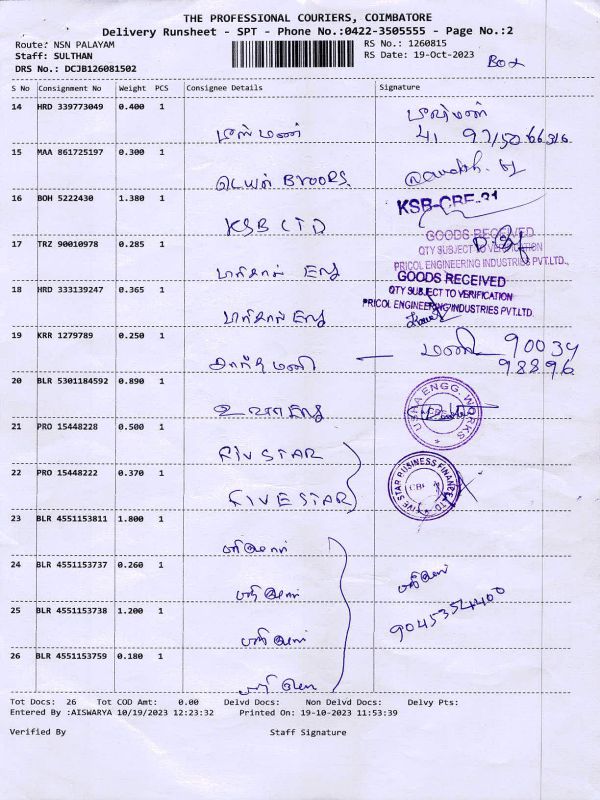 THE PROFESSIONAL COURIERS, COIMBATORE
Delivery Runsheet - SPT - Phone No.:0422-3505555 - Page No.:2
Route: NSN PALAYAM
RS No.: 1260815
Staff: SULTHAN
RS Date: 19-Oct-2023
DRS No.: DCJB126081502
Box
S No Consignment No Weight PCS Consignee Details Signature
14 HRD 339773049 0.400 1
15 MAA 861725197 0.300 1
16 BOH 5222430 1.380 1
KSB LTD
KSB-CBE-31
17 TRZ 90010978 0.285 1
GOODS RECEIVED
QTY SUBJECT TO VERIFICATION
PRICOL ENGINEERING INDUSTRIES PVT.LTD.,
18 HRD 333139247 0.365 1
GOODS RECEIVED
QTY SUBJECT TO VERIFICATION
PRICOL ENGINEERING INDUSTRIES PVT.LTD.
19 KRR 1279789 0.250 1
மணி 90034
98896
20 BLR 5301184592 0.890 1
USHA ENGG. WORKS
21 PRO 15448228 0.500 1
FIVSTAR
22 PRO 15448222 0.370 1
FIVESTAR
FIVE STAR BUSINESS FINANCE LTD
23 BLR 4551153811 1.800 1
24 BLR 4551153737 0.260 1
25 BLR 4551153738 1.200 1
26 BLR 4551153759 0.180 1
Tot Docs: 26 Tot COD Amt: 0.00 Delvd Docs: Non Delvd Docs: Delvy Pts:
Entered By :AISWARYA 10/19/2023 12:23:32 Printed On: 19-10-2023 11:53:39
Verified By Staff Signature